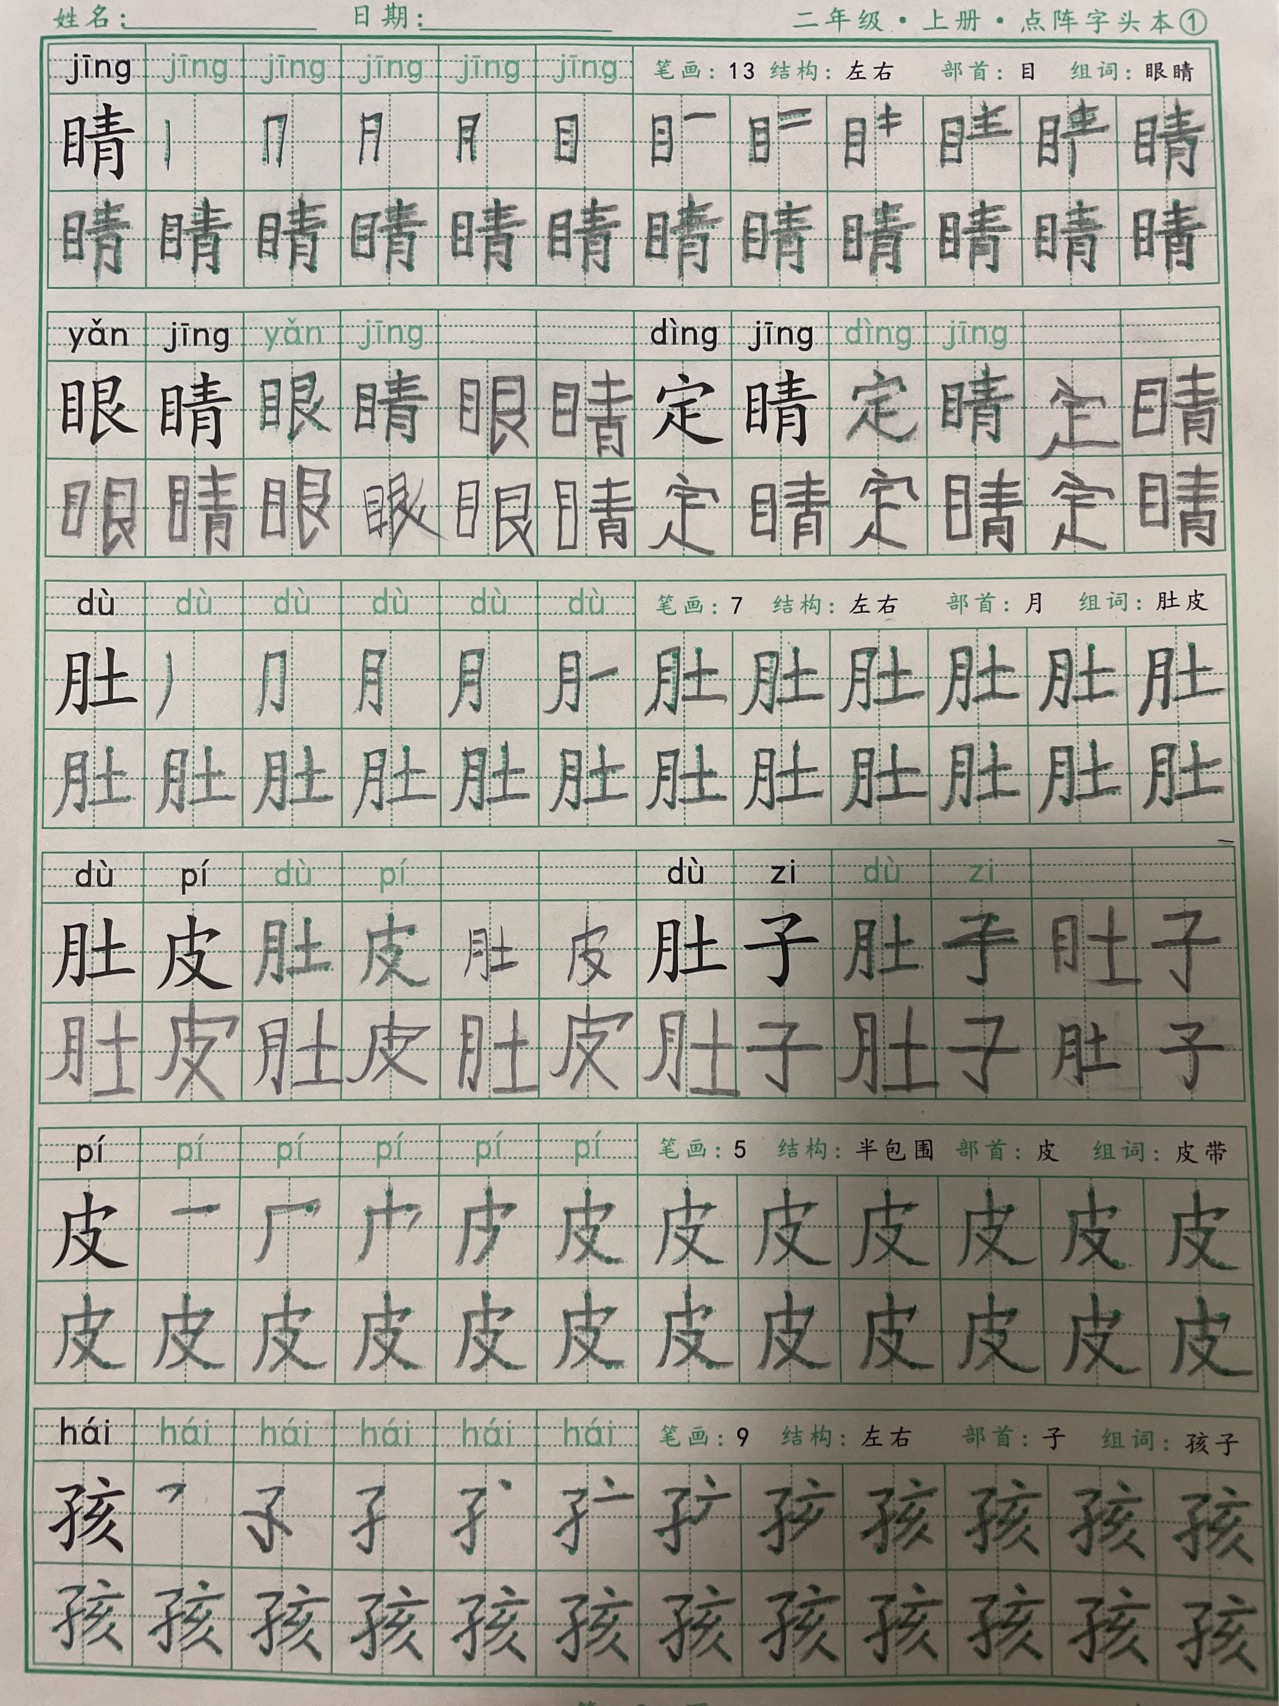 姓名： 日期： 二年级·上册·点阵字头本①
jīng jīng jīng jīng jīng jīng 笔画：13 结构：左右 部首：目 组词：眼睛
睛 丨 目 目一 目二 睛
睛 睛 睛 睛 睛 睛 睛 睛 睛 睛 睛 睛
yǎn jīng yǎn jīng dìng jīng dìng jīng
眼 睛 眼 睛 眼 睛 定 睛 定 睛 定 睛
眼 睛 眼 眼 眼 睛 定 睛 定 睛 定 睛
dù dù dù dù dù dù 笔画：7 结构：左右 部首：月 组词：肚皮
肚 丿 月 月 月一 肚 肚 肚 肚 肚 肚
肚 肚 肚 肚 肚 肚 肚 肚 肚 肚 肚 肚
dù pí dù pí dù zi dù zi
肚 皮 肚 皮 肚 皮 肚 子 肚 子 肚 子
肚 皮 肚 皮 肚 皮 肚 子 肚 子 肚 子
pí pí pí pí pí pí 笔画：5 结构：半包围 部首：皮 组词：皮带
皮 一 厂 皮 皮 皮 皮 皮 皮 皮
皮 皮 皮 皮 皮 皮 皮 皮 皮 皮 皮 皮
hái hái hái hái hái hái 笔画：9 结构：左右 部首：子 组词：孩子
孩 子 孩 孩 孩 孩
孩 孩 孩 孩 孩 孩 孩 孩 孩 孩 孩 孩